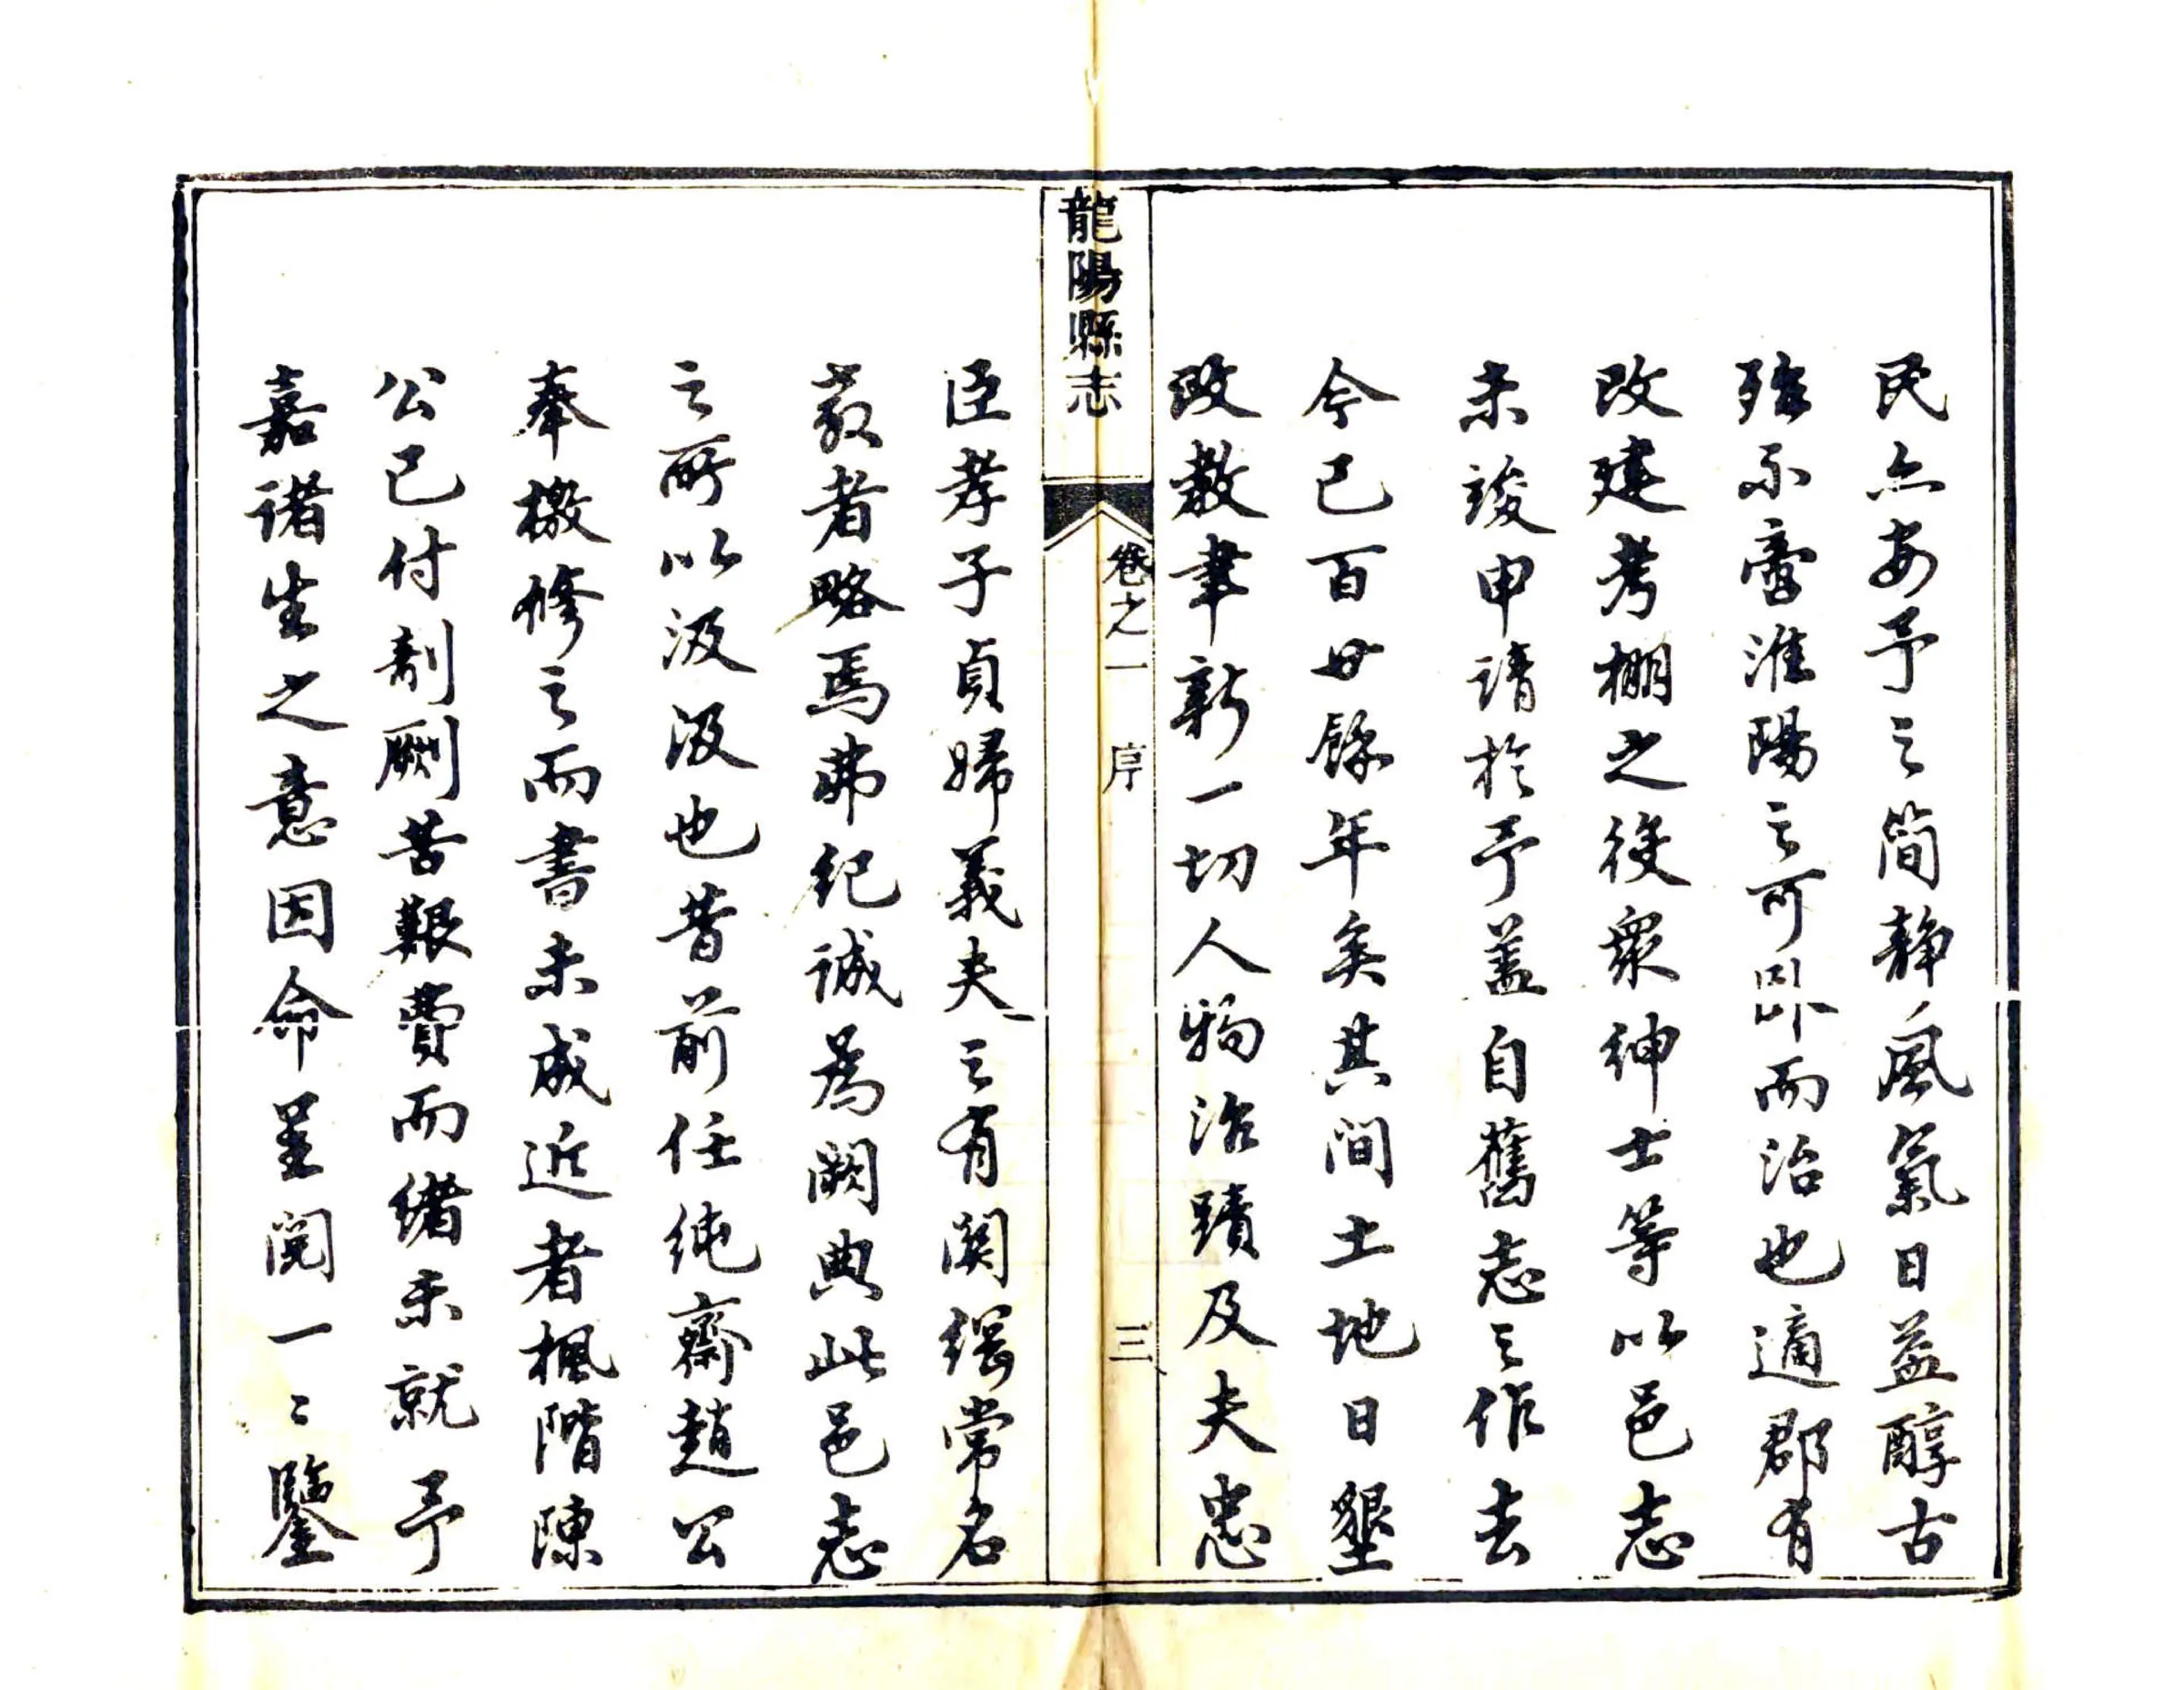 民亦安予之簡靜風氣日益醇古
殊不啻淮陽之可臥而治也適郡有
改建考棚之後衆紳士等以邑志
未竣申請於予蓋自舊志之作去
今已百廿餘年矣其間土地日墾
政教聿新一切人物治蹟及夫忠
龍陽縣志
卷之一 序 三
臣孝子貞婦義夫之有関綱常名
敎者略焉弗紀誠為闕典此邑志
之所以汲汲也昔前任純齋趙公
奉檄修之而書未成近者楓階陳
公已付剞劂苦艱費而緒未就予
嘉諸生之意因命呈閱一〻鑒